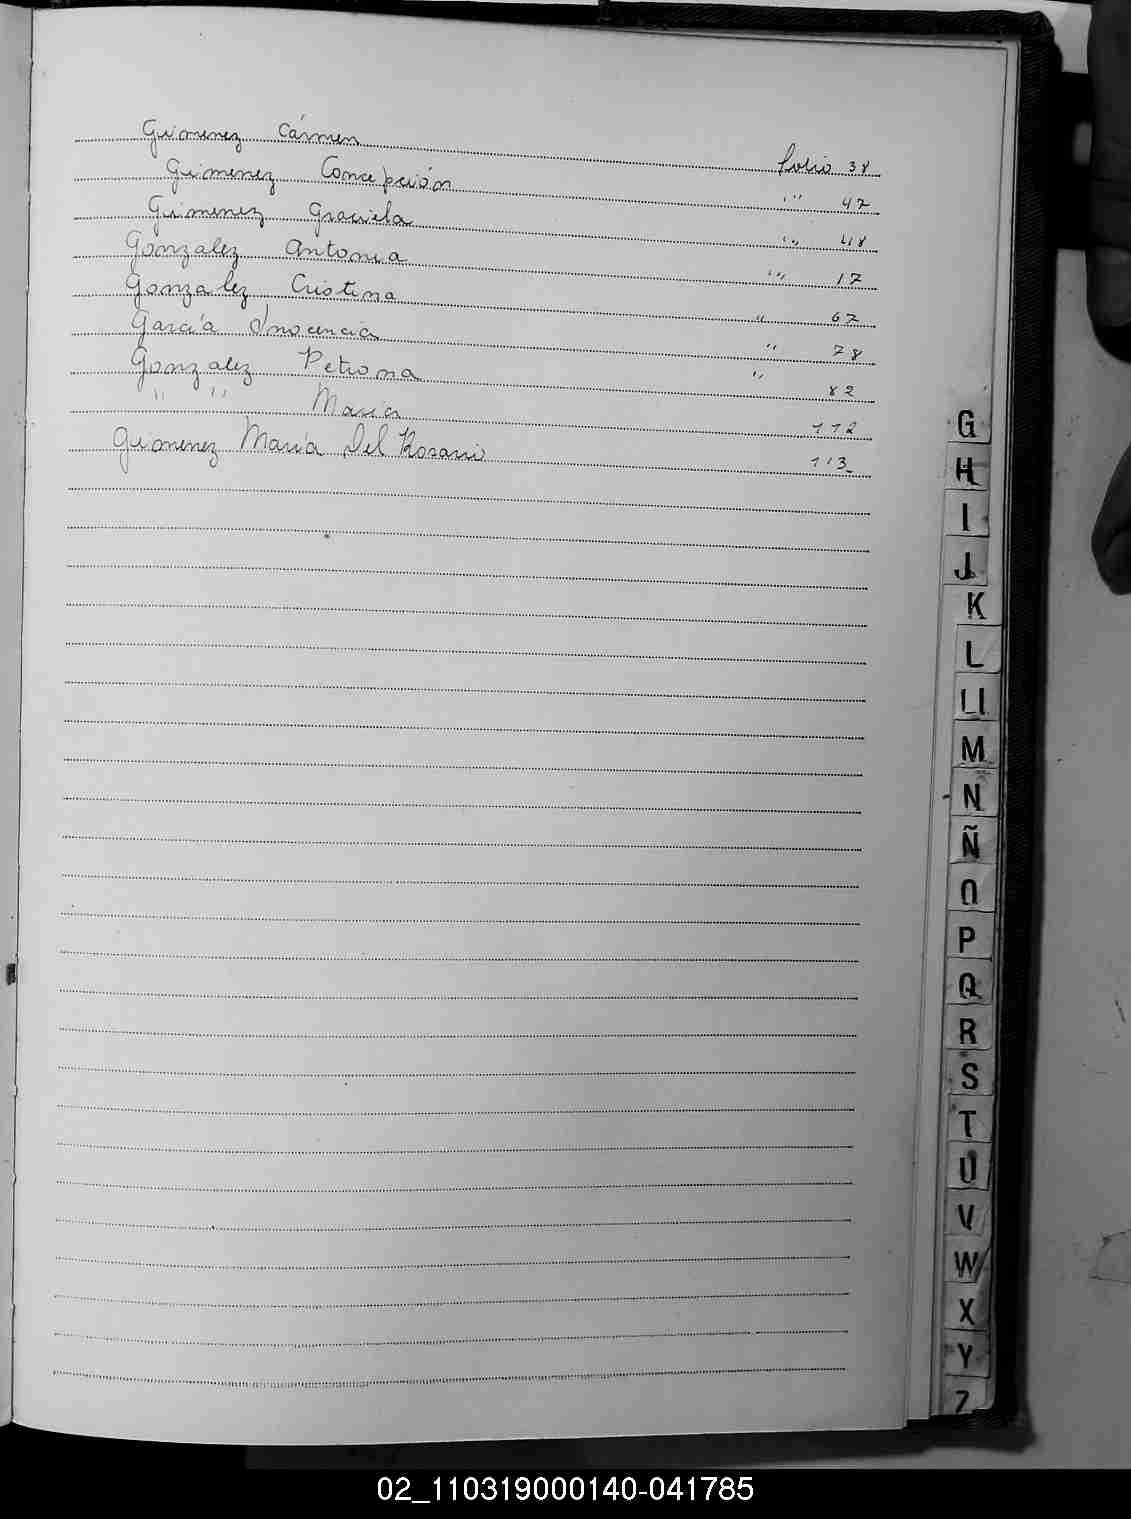 Gimenez Cármen folio 38
Gimenez Concepción " 47
Gimenez Graciela " 48
Gonzalez Antonia " 17
Gonzalez Cristina " 67
García Inocencia " 78
Gonzalez Petrona " 82
" " María 112
Gimenez María Del Rosario 113
G
H
I
J
K
L
Ll
M
N
Ñ
O
P
Q
R
S
T
U
V
W
X
Y
Z
02_110319000140-041785